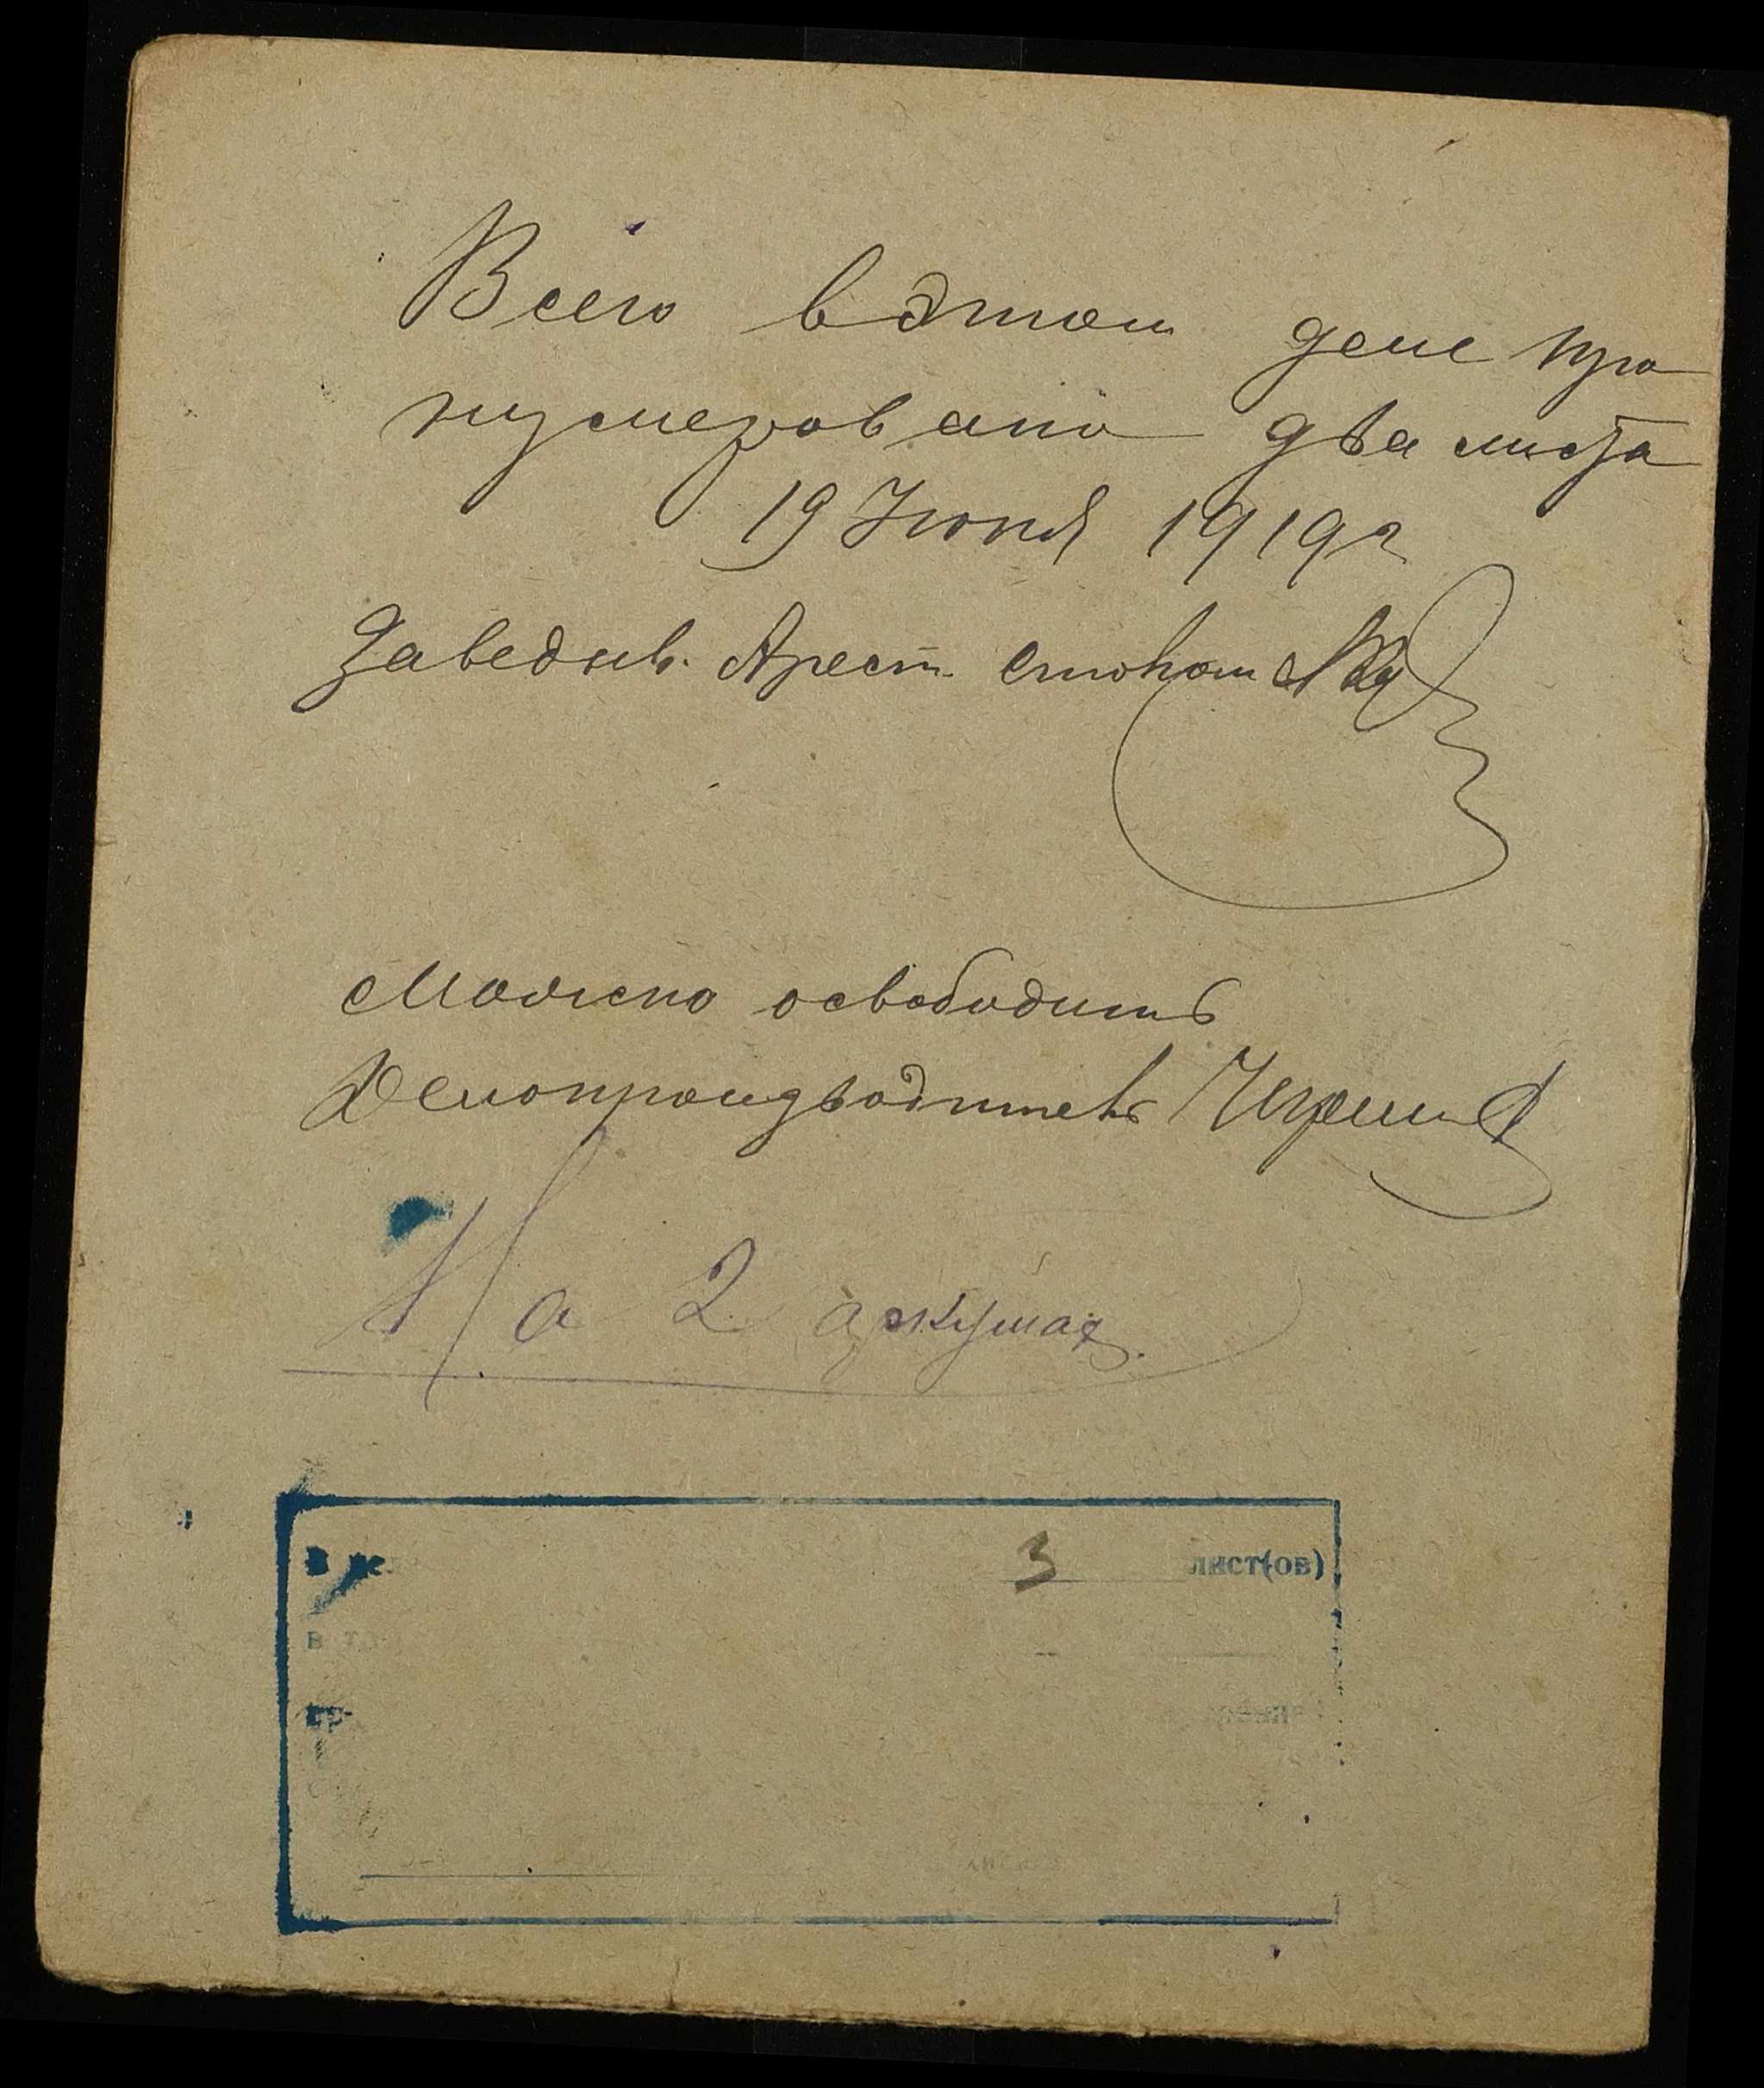 Всего в этом деле про
нумеровано два листа
19 Июня 1919 г
Заведыв. Арест. столом
Можно освободить
Делопроизводитель
На 2 аркушах.
3 лист(ов)